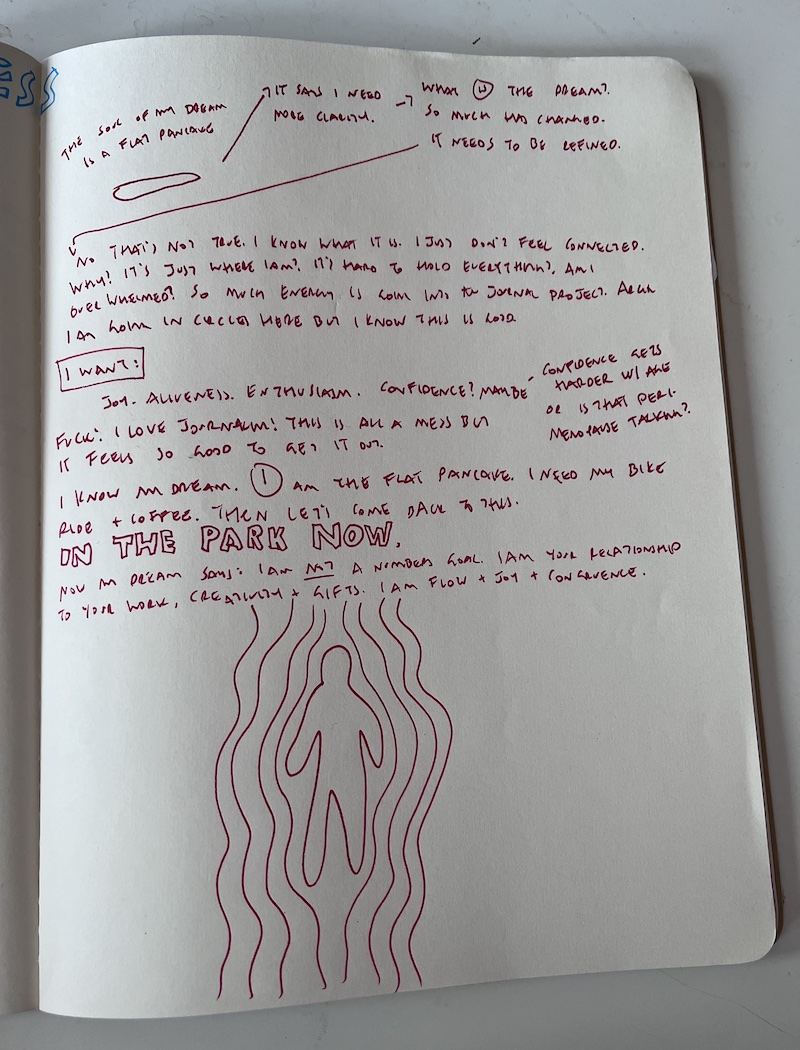 ESS
THE SOUL OF MY DREAM
IS A FLAT PANCAKE
IT SAYS I NEED
MORE CLARITY.
WHAT IS THE DREAM?
SO MUCH HAS CHANGED.
IT NEEDS TO BE REFINED.
NO THAT'S NOT TRUE. I KNOW WHAT IT IS. I JUST DON'T FEEL CONNECTED.
WHY? IT'S JUST WHERE I AM? IT'S HARD TO HOLD EVERYTHING?, AM I
OVERWHELMED? SO MUCH ENERGY IS GOING INTO THE JOURNAL PROJECT. ARGH
I AM GOING IN CIRCLES HERE BUT I KNOW THIS IS GOOD
I WANT:
JOY. ALIVENESS. ENTHUSIASM. CONFIDENCE? MAYBE
- CONFIDENCE GETS
HARDER W/ AGE
OR IS THAT PERI-
MENOPAUSE TALKING?
FUCK! I LOVE JOURNALING! THIS IS ALL A MESS BUT
IT FEELS SO GOOD TO GET IT OUT.
I KNOW MY DREAM. I AM THE FLAT PANCAKE. I NEED MY BIKE
RIDE + COFFEE. THEN LET'S COME BACK TO THIS.
IN THE PARK NOW,
NOW MY DREAM SAYS: I AM NOT A NUMBERS GOAL. I AM YOUR RELATIONSHIP
TO YOUR WORK, CREATIVITY + GIFTS. I AM FLOW + JOY + CONGRUENCE.